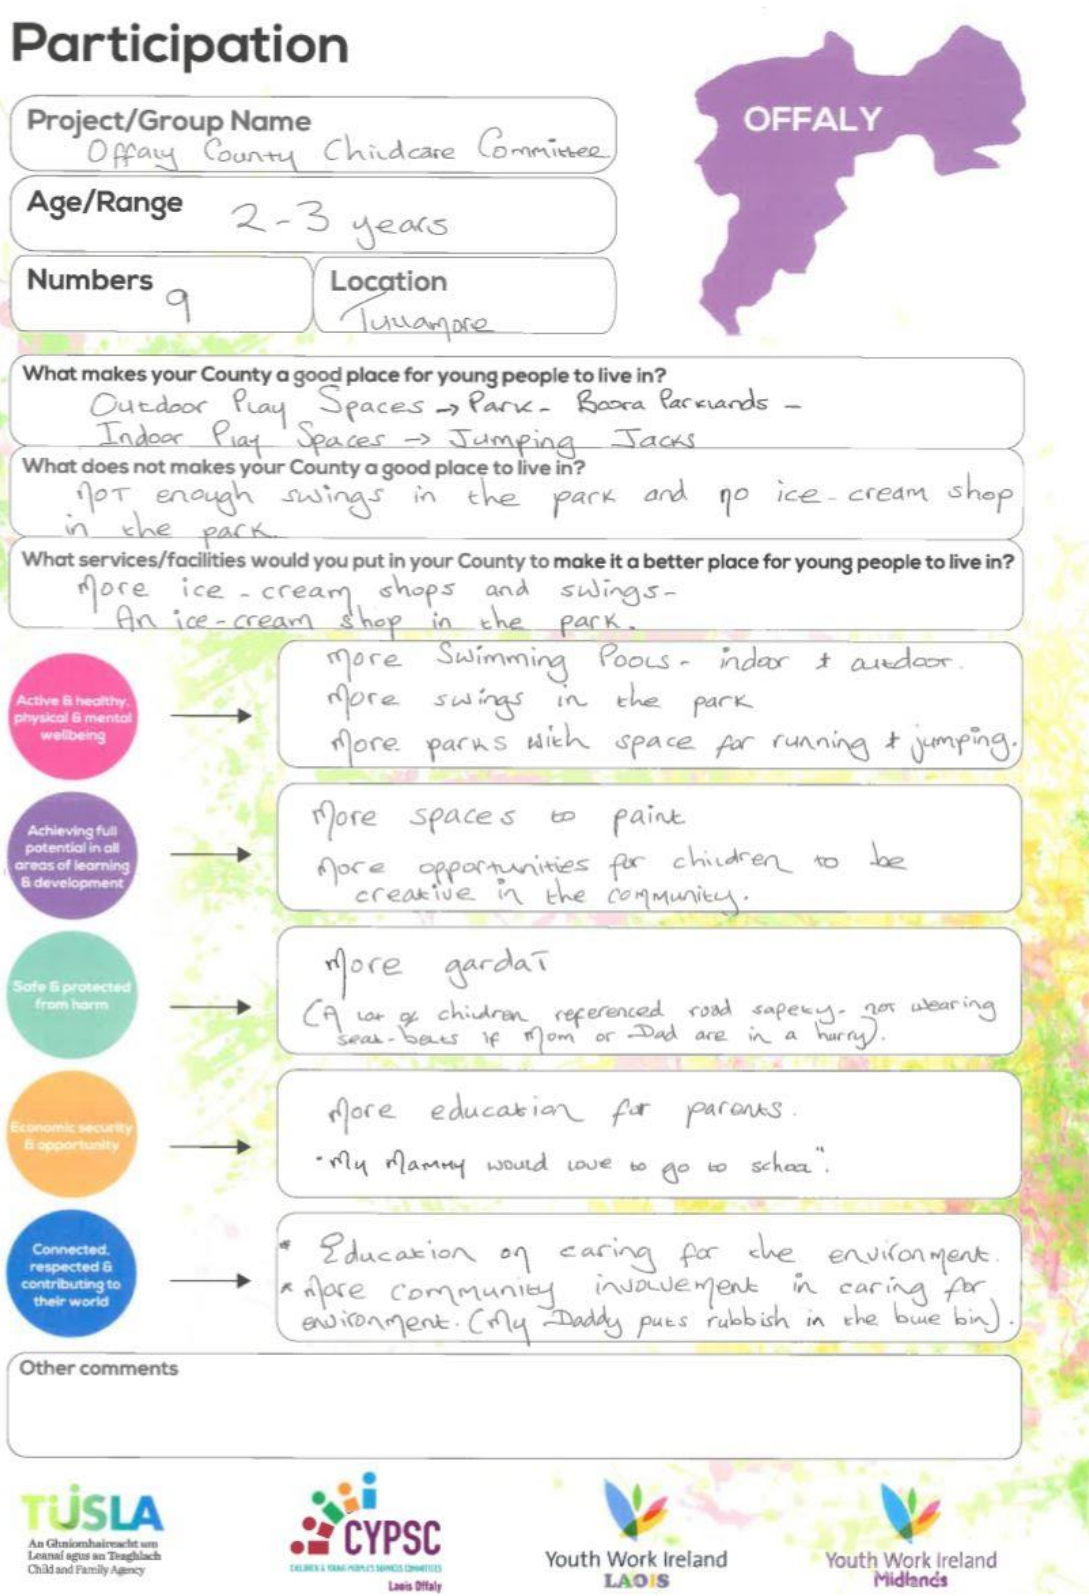 Participation
OFFALY
Project/Group Name
Offaly County Childcare Committee
Age/Range 2-3 years
Numbers 9
Location
Tullamore
What makes your County a good place for young people to live in?
Outdoor Play Spaces → Park - Boora Parklands -
Indoor Play Spaces → Jumping Jacks
What does not makes your County a good place to live in?
Not enough swings in the park and no ice-cream shop
in the park.
What services/facilities would you put in your County to make it a better place for young people to live in?
More ice-cream shops and swings-
An ice-cream shop in the park.
Active & healthy,
physical & mental
wellbeing
More Swimming Pools - indoor + outdoor.
More swings in the park
More parks with space for running + jumping.
Achieving full
potential in all
areas of learning
& development
More spaces to paint
More opportunities for children to be
creative in the community.
Safe & protected
from harm
More gardaí
(A lot of children referenced road safety - not wearing
seat-belts if Mom or Dad are in a hurry).
Economic security
& opportunity
More education for parents.
"My Mammy would love to go to school".
Connected,
respected &
contributing to
their world
* Education on caring for the environment.
* More community involvement in caring for
environment. (My Daddy puts rubbish in the blue bin).
Other comments
TUSLA
An Ghníomhaireacht um
Leanaí agus an Teaghlach
Child and Family Agency
CYPSC
CHILDREN & YOUNG PEOPLE'S SERVICES COMMITTEES
Laois Offaly
Youth Work Ireland
LAOIS
Youth Work Ireland
Midlands